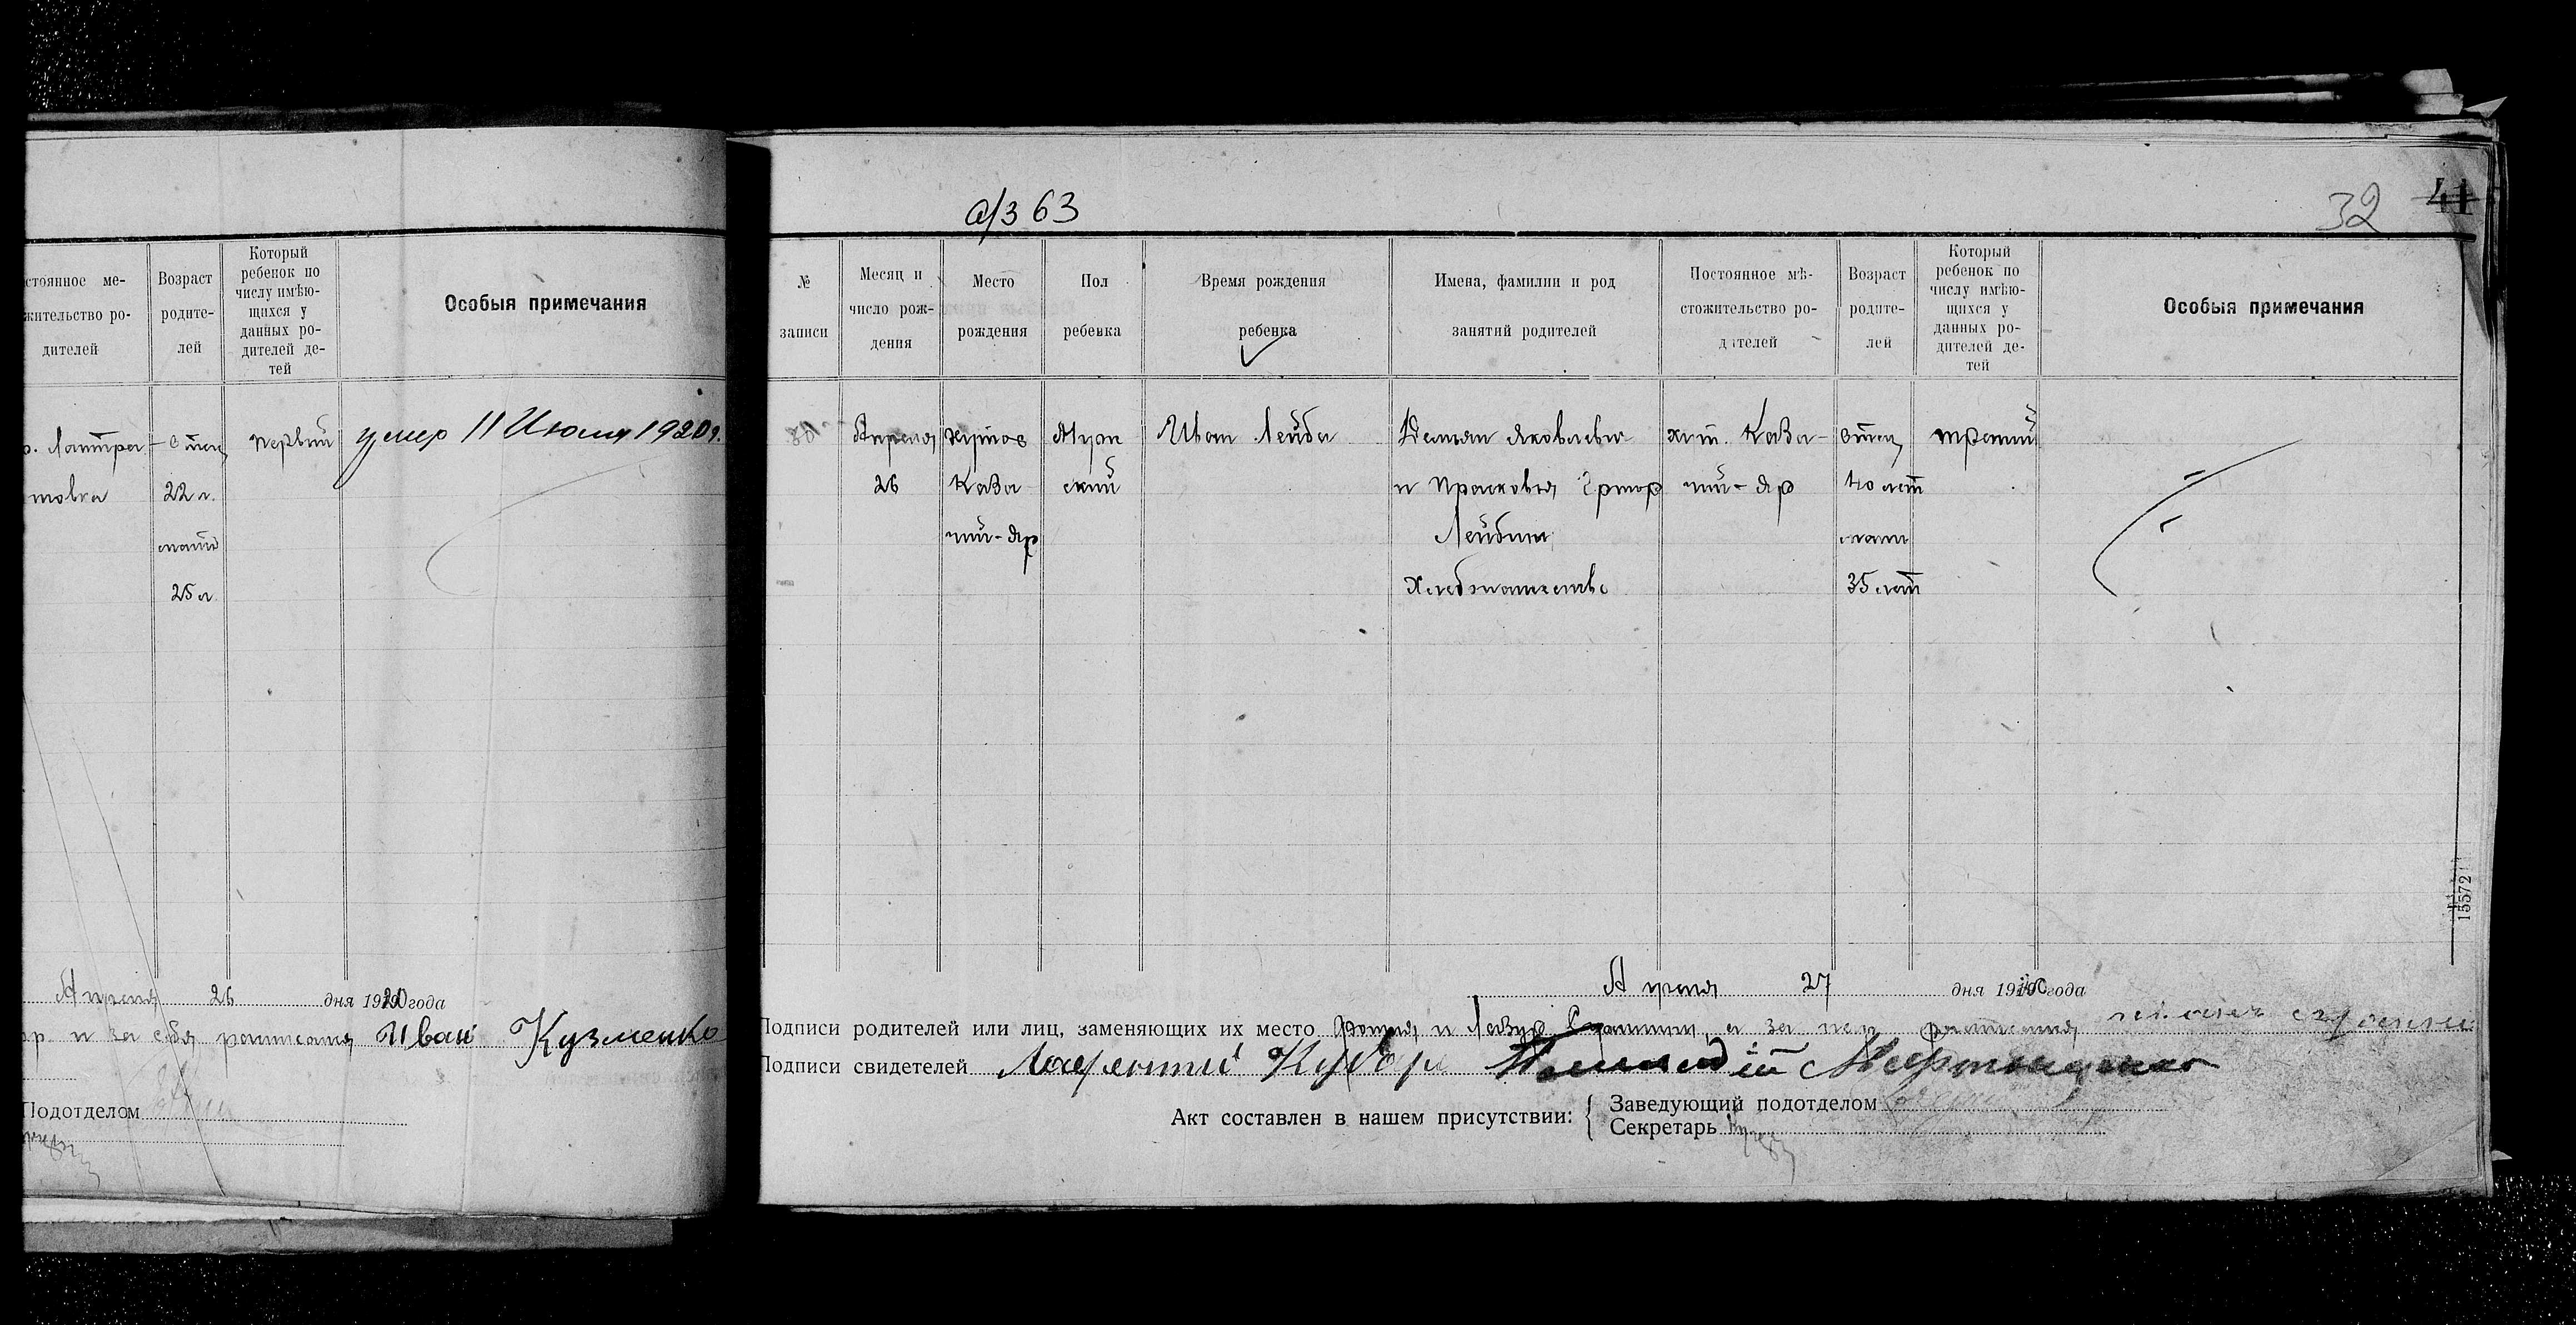 стоянное ме-
жительство ро-
дителей
Возраст
родите-
лей
Который
ребенок по
числу имѣю-
щихся у
данных ро-
дителей де-
тей
Особыя примечания
отец
22 л.
мать
25 л.
первый
умер 11 Июля 1920 г.
Апреля 26 дня 1920 года
и за себя Иван Кузменко
Подотделом
а/з 63
32 41
№
записи
Месяц и
число рож-
дения
Место
рождения
Пол
ребенка
Время рождения
ребенка
Имена, фамилии и род
занятий родителей
Постоянное мѣ-
стожительство ро-
дителей
Возраст
родите-
лей
Который
ребенок по
числу имѣю-
щихся у
данных ро-
дителей де-
тей
Особыя примечания
Апреля
26
хутор
Каза
чий-Яр
Муж
ский
Иван Лейба
Демьян Яковлевич
и Прасковья
Лейбы
Хлебопашество
хут. Каза-
чий-Яр
отец
40 лет
мать
35 лет
третий
15572
Апреля 27 дня 19 года
Подписи родителей или лиц, заменяющих их место
Подписи свидетелей
Акт составлен в нашем присутствии:
Заведующий подотделом
Секретарь